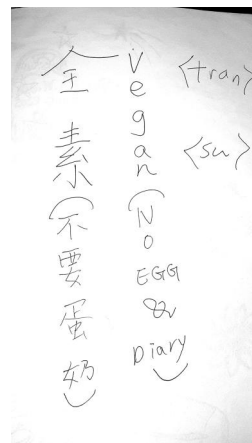 全素(不要蛋奶)
vegan(No EGG & Diary)
<tran>
<su>